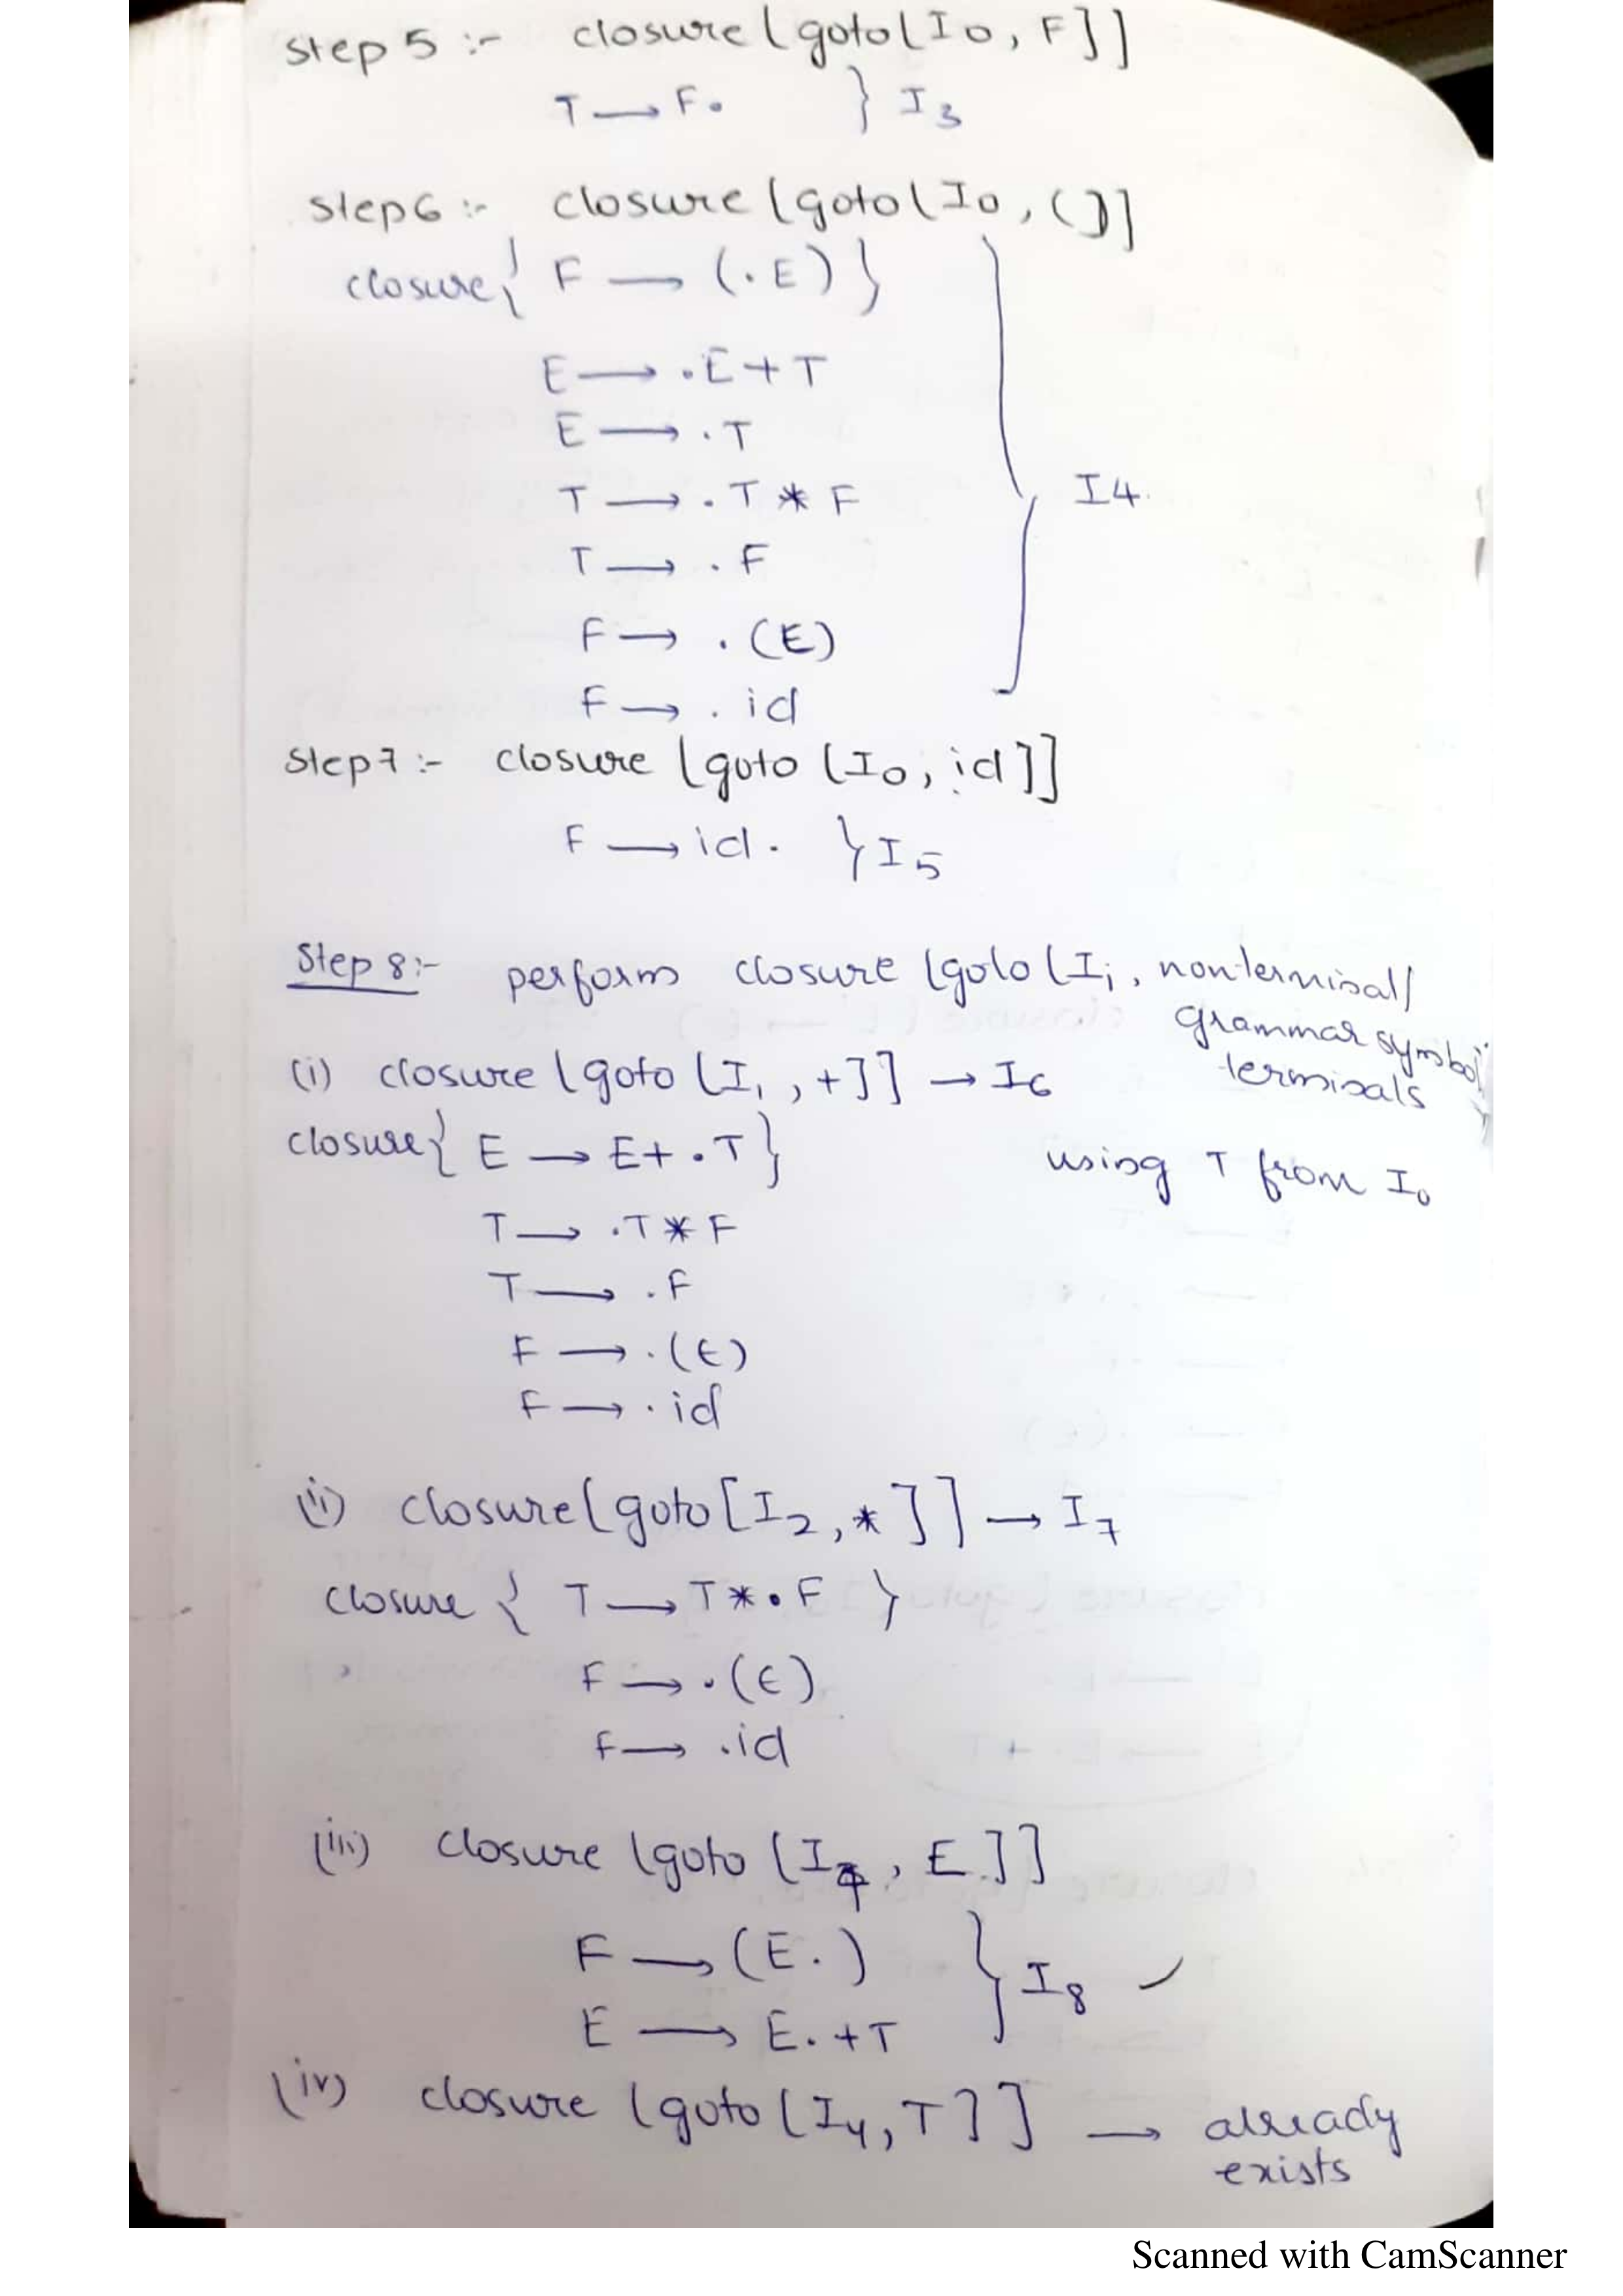 Step 5 :- closure [goto[I0, F]]
T → F. } I3
Step 6 :- closure [goto[I0, (]]
closure { F → (.E) }
E → .E + T
E → .T
T → .T * F
T → .F
F → .(E)
F → .id
I4
Step 7 :- closure [goto [I0, id]]
F → id. } I5
Step 8 :- perform closure [goto [Ii, nonterminal/
grammar symbol
terminals
(i) closure [goto [I1, +]] → I6
closure { E → E + .T } using T from I0
T → .T * F
T → .F
F → .(E)
F → .id
(ii) closure [goto [I2, *]] → I7
closure { T → T * .F }
F → .(E)
F → .id
(iii) closure [goto [I4, E]]
F → (E.)
E → E. + T
} I8 ✓
(iv) closure [goto [I4, T]] → already
exists
Scanned with CamScanner